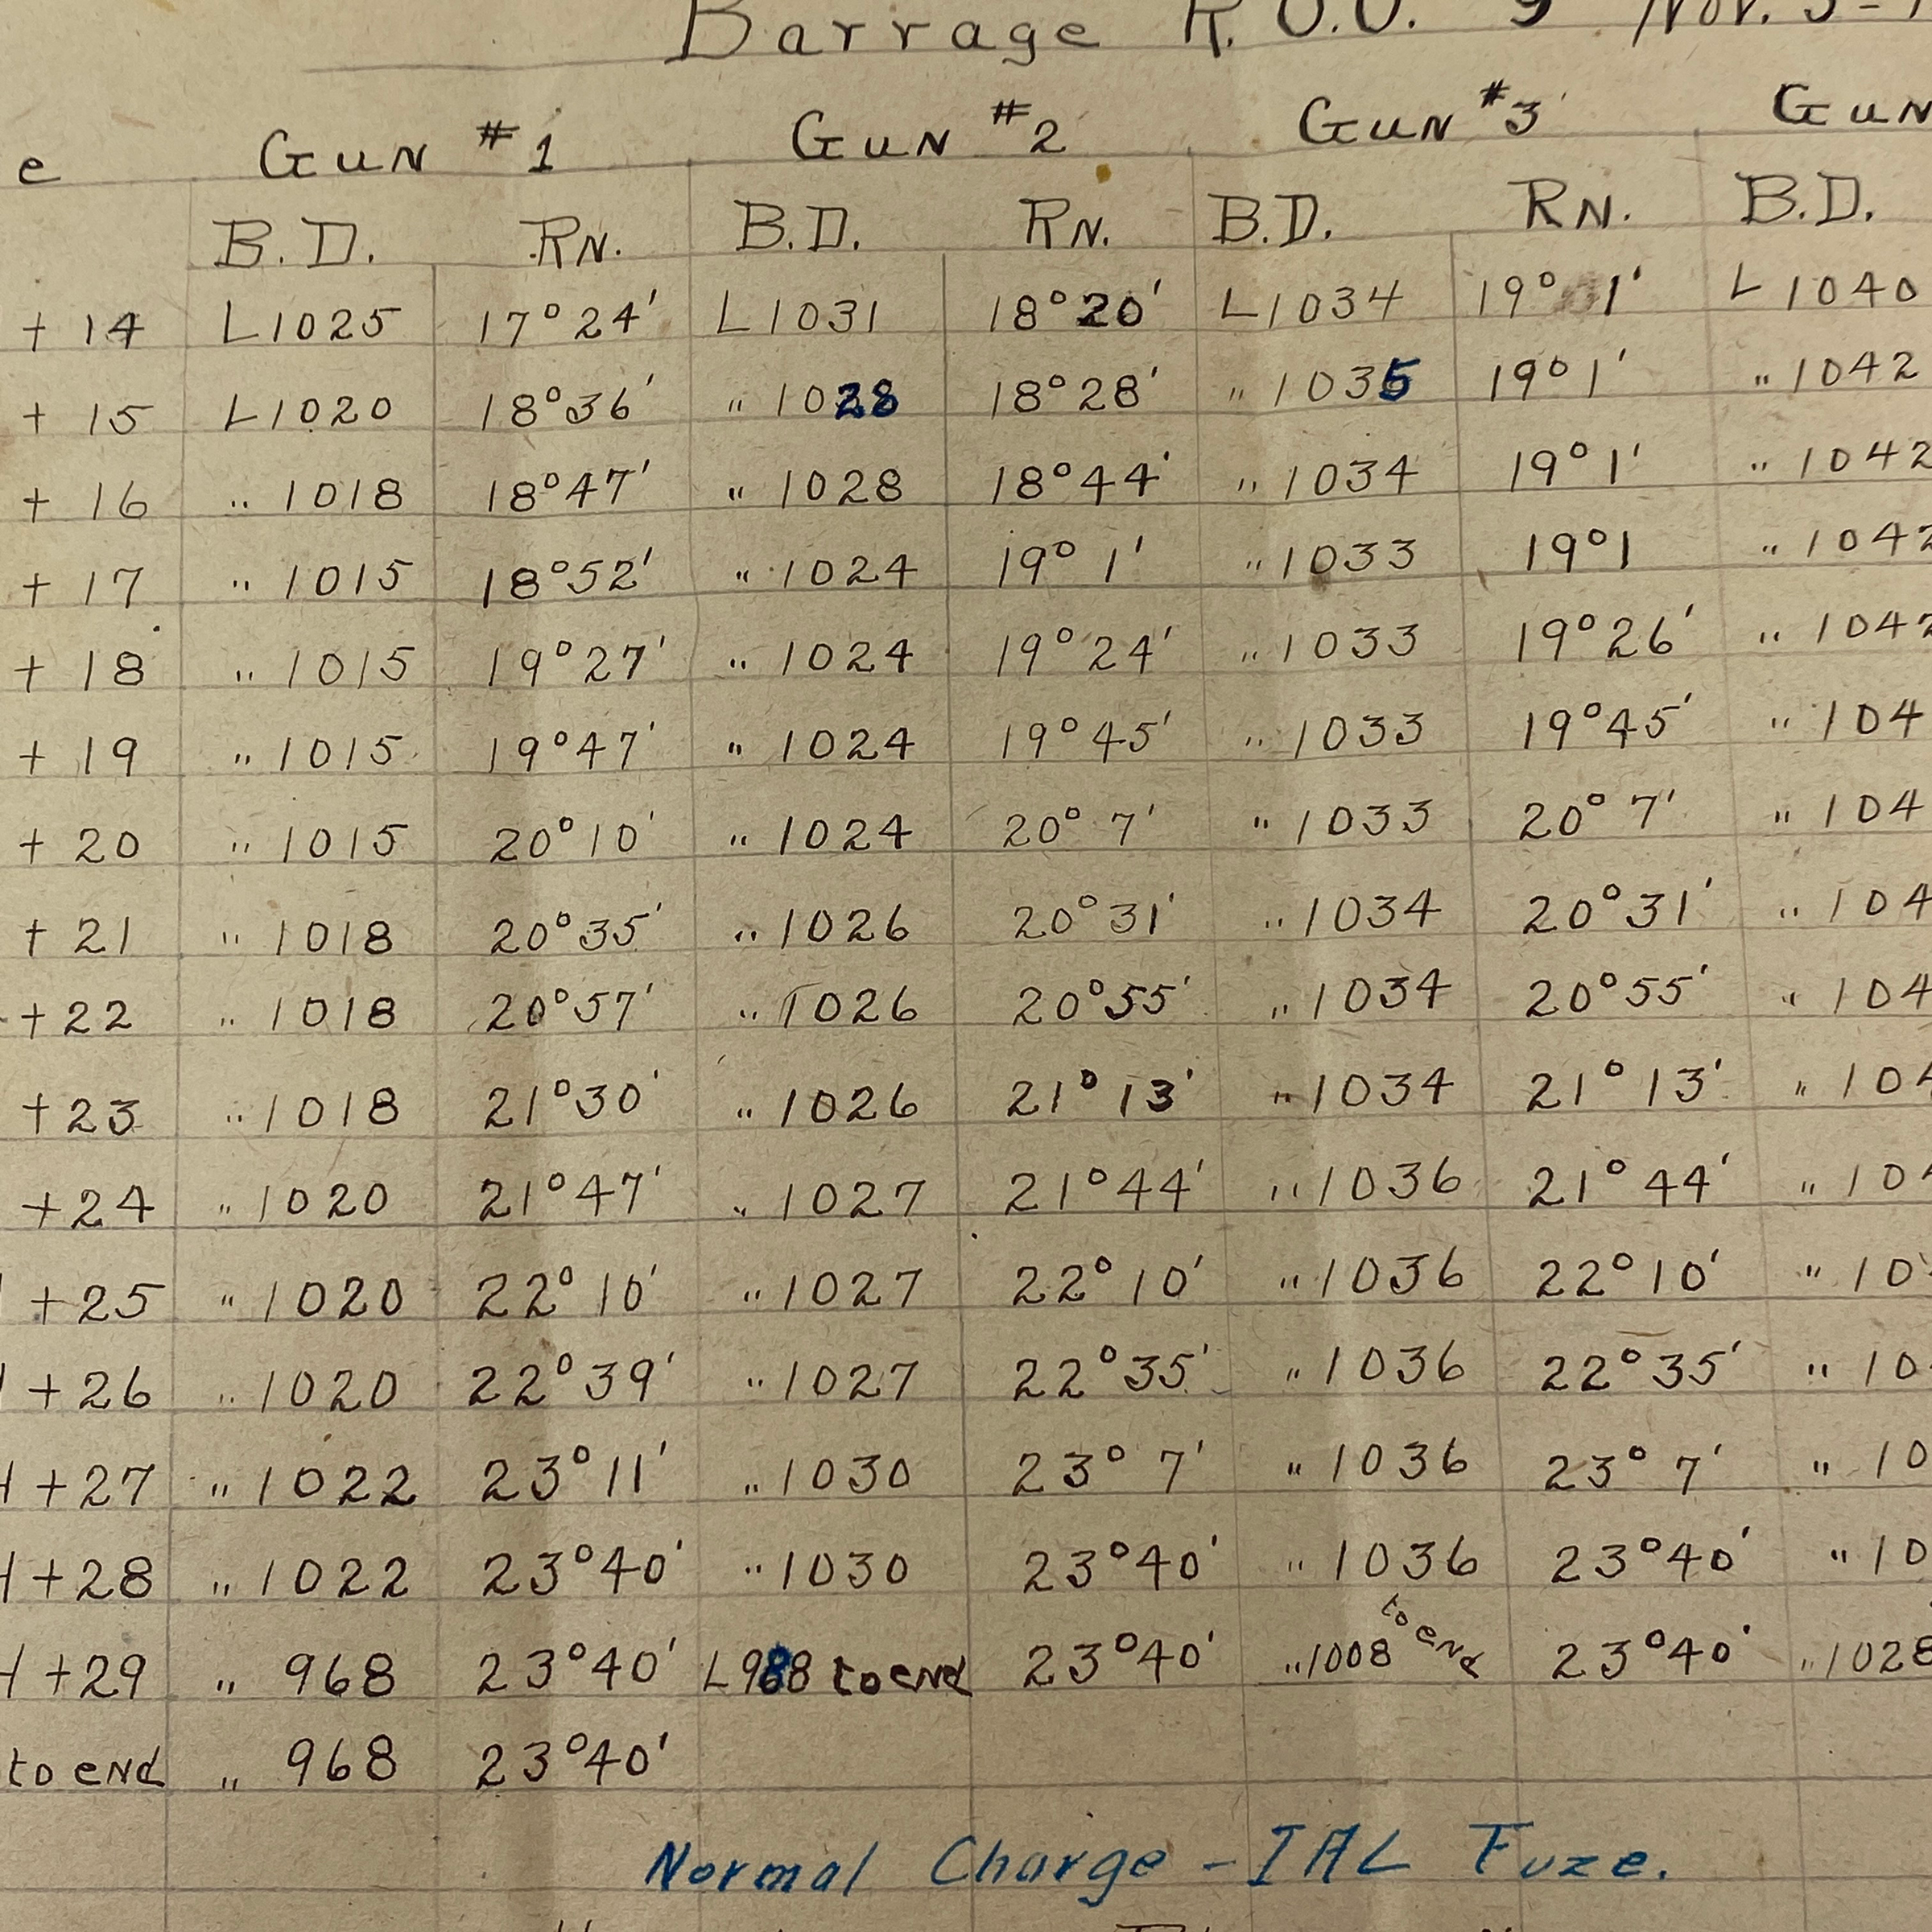 Barrage R.O.O. 9 Nov. 5-1
e Gun #1 Gun #2 Gun #3 Gun
B.D. RN. B.D. RN. B.D. RN. B.D.
+ 14 L1025 17°24' L1031 18°20' L1034 19°1' L1040
+ 15 L1020 18°36' " 1028 18°28' " 1035 19°1' " 1042
+ 16 " 1018 18°47' " 1028 18°44' " 1034 19°1' " 1042
+ 17 " 1015 18°52' " 1024 19°1' " 1033 19°1 " 1042
+ 18 " 1015 19°27' " 1024 19°24' " 1033 19°26' " 1042
+ 19 " 1015 19°47' " 1024 19°45' " 1033 19°45' " 104
+ 20 " 1015 20°10' " 1024 20°7' " 1033 20°7' " 104
+ 21 " 1018 20°35' " 1026 20°31' " 1034 20°31' " 104
+22 " 1018 20°57' " 1026 20°55' " 1034 20°55' " 104
+23 " 1018 21°30' " 1026 21°13' " 1034 21°13' " 104
+24 " 1020 21°47' " 1027 21°44' " 1036 21°44' " 104
+25 " 1020 22°10' " 1027 22°10' " 1036 22°10' " 10
+26 " 1020 22°39' " 1027 22°35' " 1036 22°35' " 10
H +27 " 1022 23°11' " 1030 23°7' " 1036 23°7' " 10
H +28 " 1022 23°40' " 1030 23°40' " 1036 23°40' " 10
H +29 " 968 23°40' L988 to end 23°40' " 1008 to end 23°40' " 1028
to end " 968 23°40'
Normal Charge - IAL Fuze.